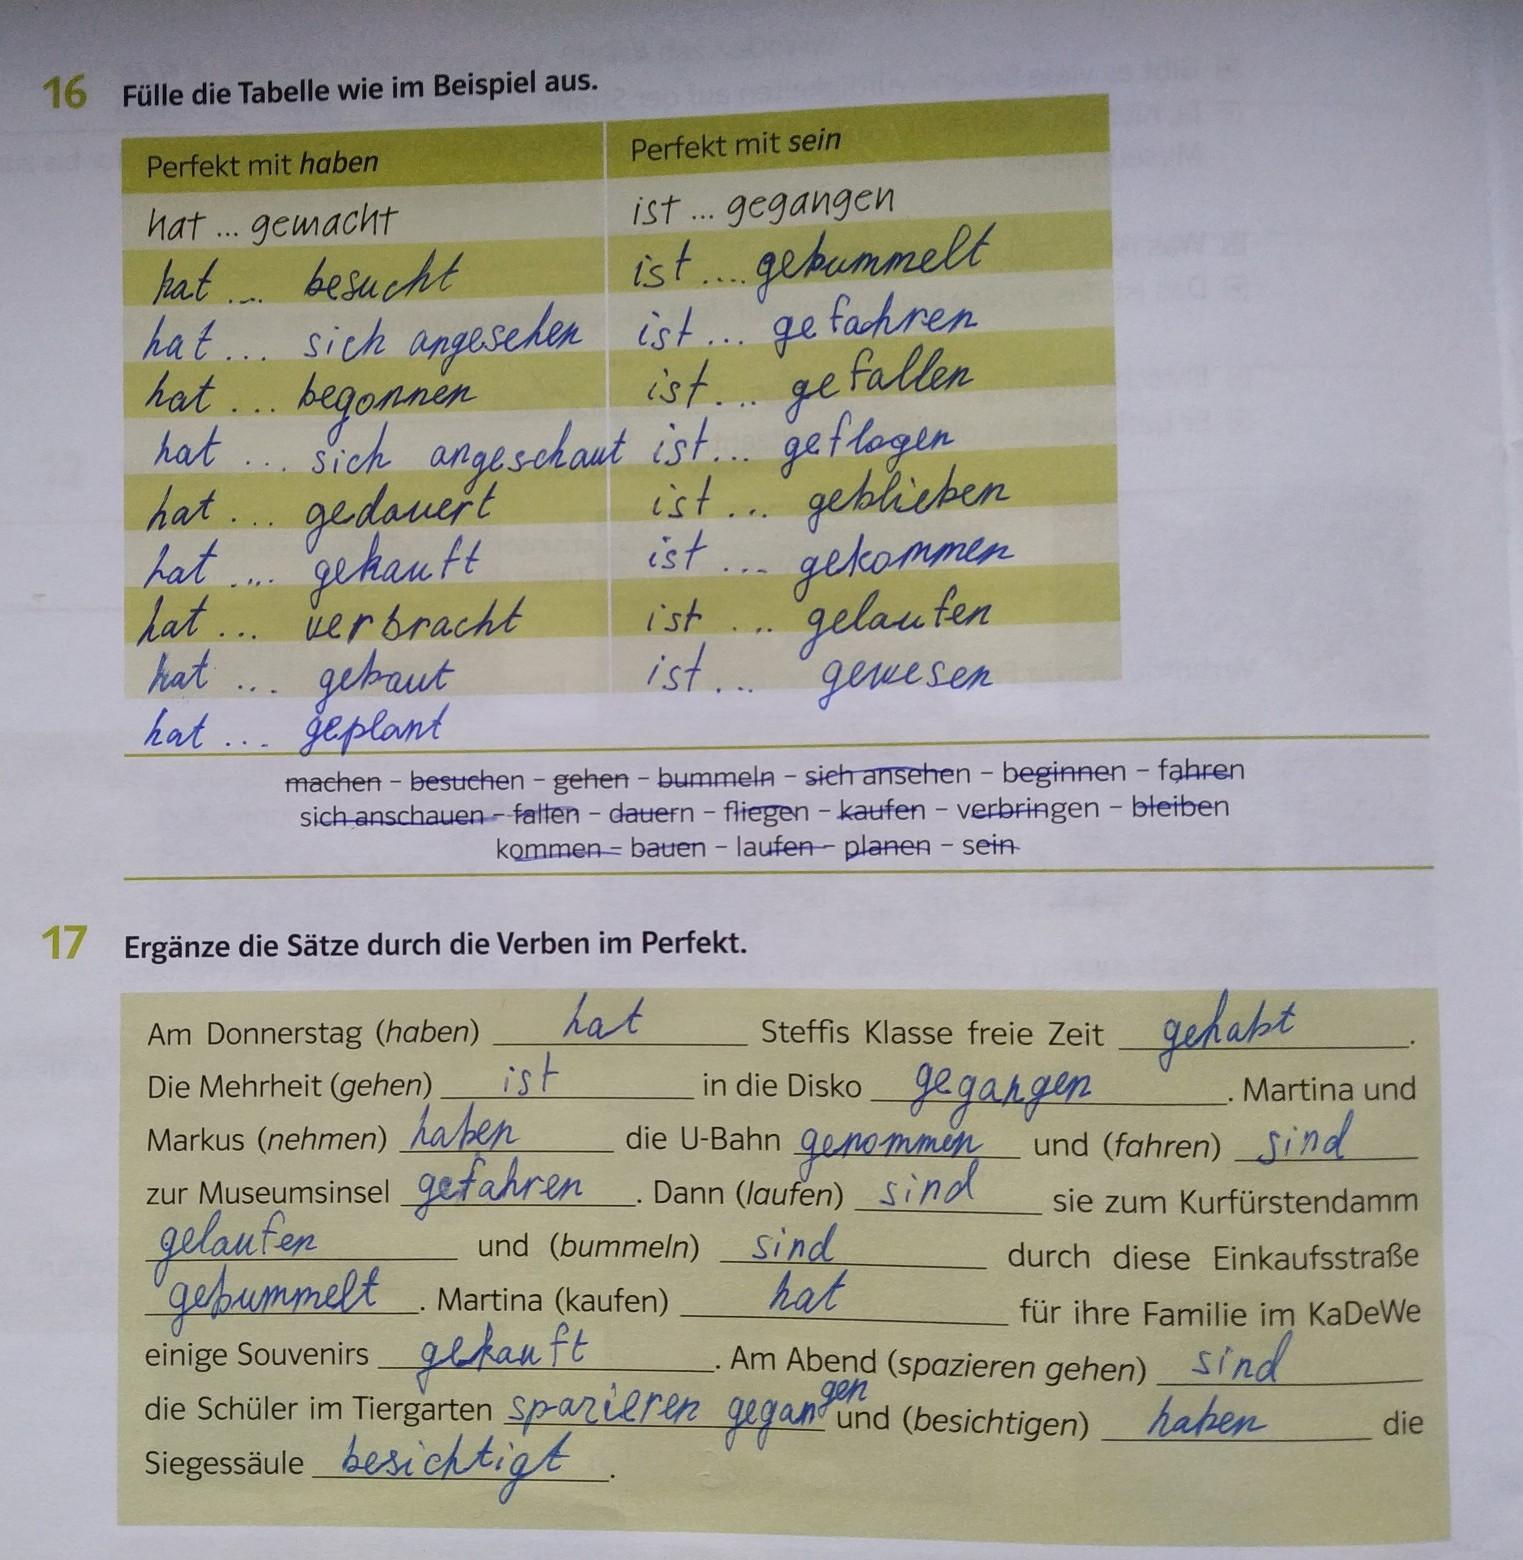 16 Fülle die Tabelle wie im Beispiel aus.
Perfekt mit haben Perfekt mit sein
hat ... gemacht ist ... gegangen
hat ... besucht ist .... gebummelt
hat ... sich angesehen ist ... gefahren
hat ... begonnen ist ... gefallen
hat ... sich angeschaut ist ... geflogen
hat ... gedauert ist ... geblieben
hat .... gekauft ist ... gekommen
hat ... verbracht ist ... gelaufen
hat ... gebaut ist ... gewesen
hat ... geplant
machen – besuchen – gehen – bummeln – sich ansehen – beginnen – fahren
sich anschauen – fallen – dauern – fliegen – kaufen – verbringen – bleiben
kommen – bauen – laufen – planen – sein
17 Ergänze die Sätze durch die Verben im Perfekt.
Am Donnerstag (haben) hat Steffis Klasse freie Zeit gehabt.
Die Mehrheit (gehen) ist in die Disko gegangen. Martina und
Markus (nehmen) haben die U-Bahn genommen und (fahren) sind
zur Museumsinsel gefahren. Dann (laufen) sind sie zum Kurfürstendamm
gelaufen und (bummeln) sind durch diese Einkaufsstraße
gebummelt. Martina (kaufen) hat für ihre Familie im KaDeWe
einige Souvenirs gekauft. Am Abend (spazieren gehen) sind
die Schüler im Tiergarten spazieren gegangen und (besichtigen) haben die
Siegessäule besichtigt.